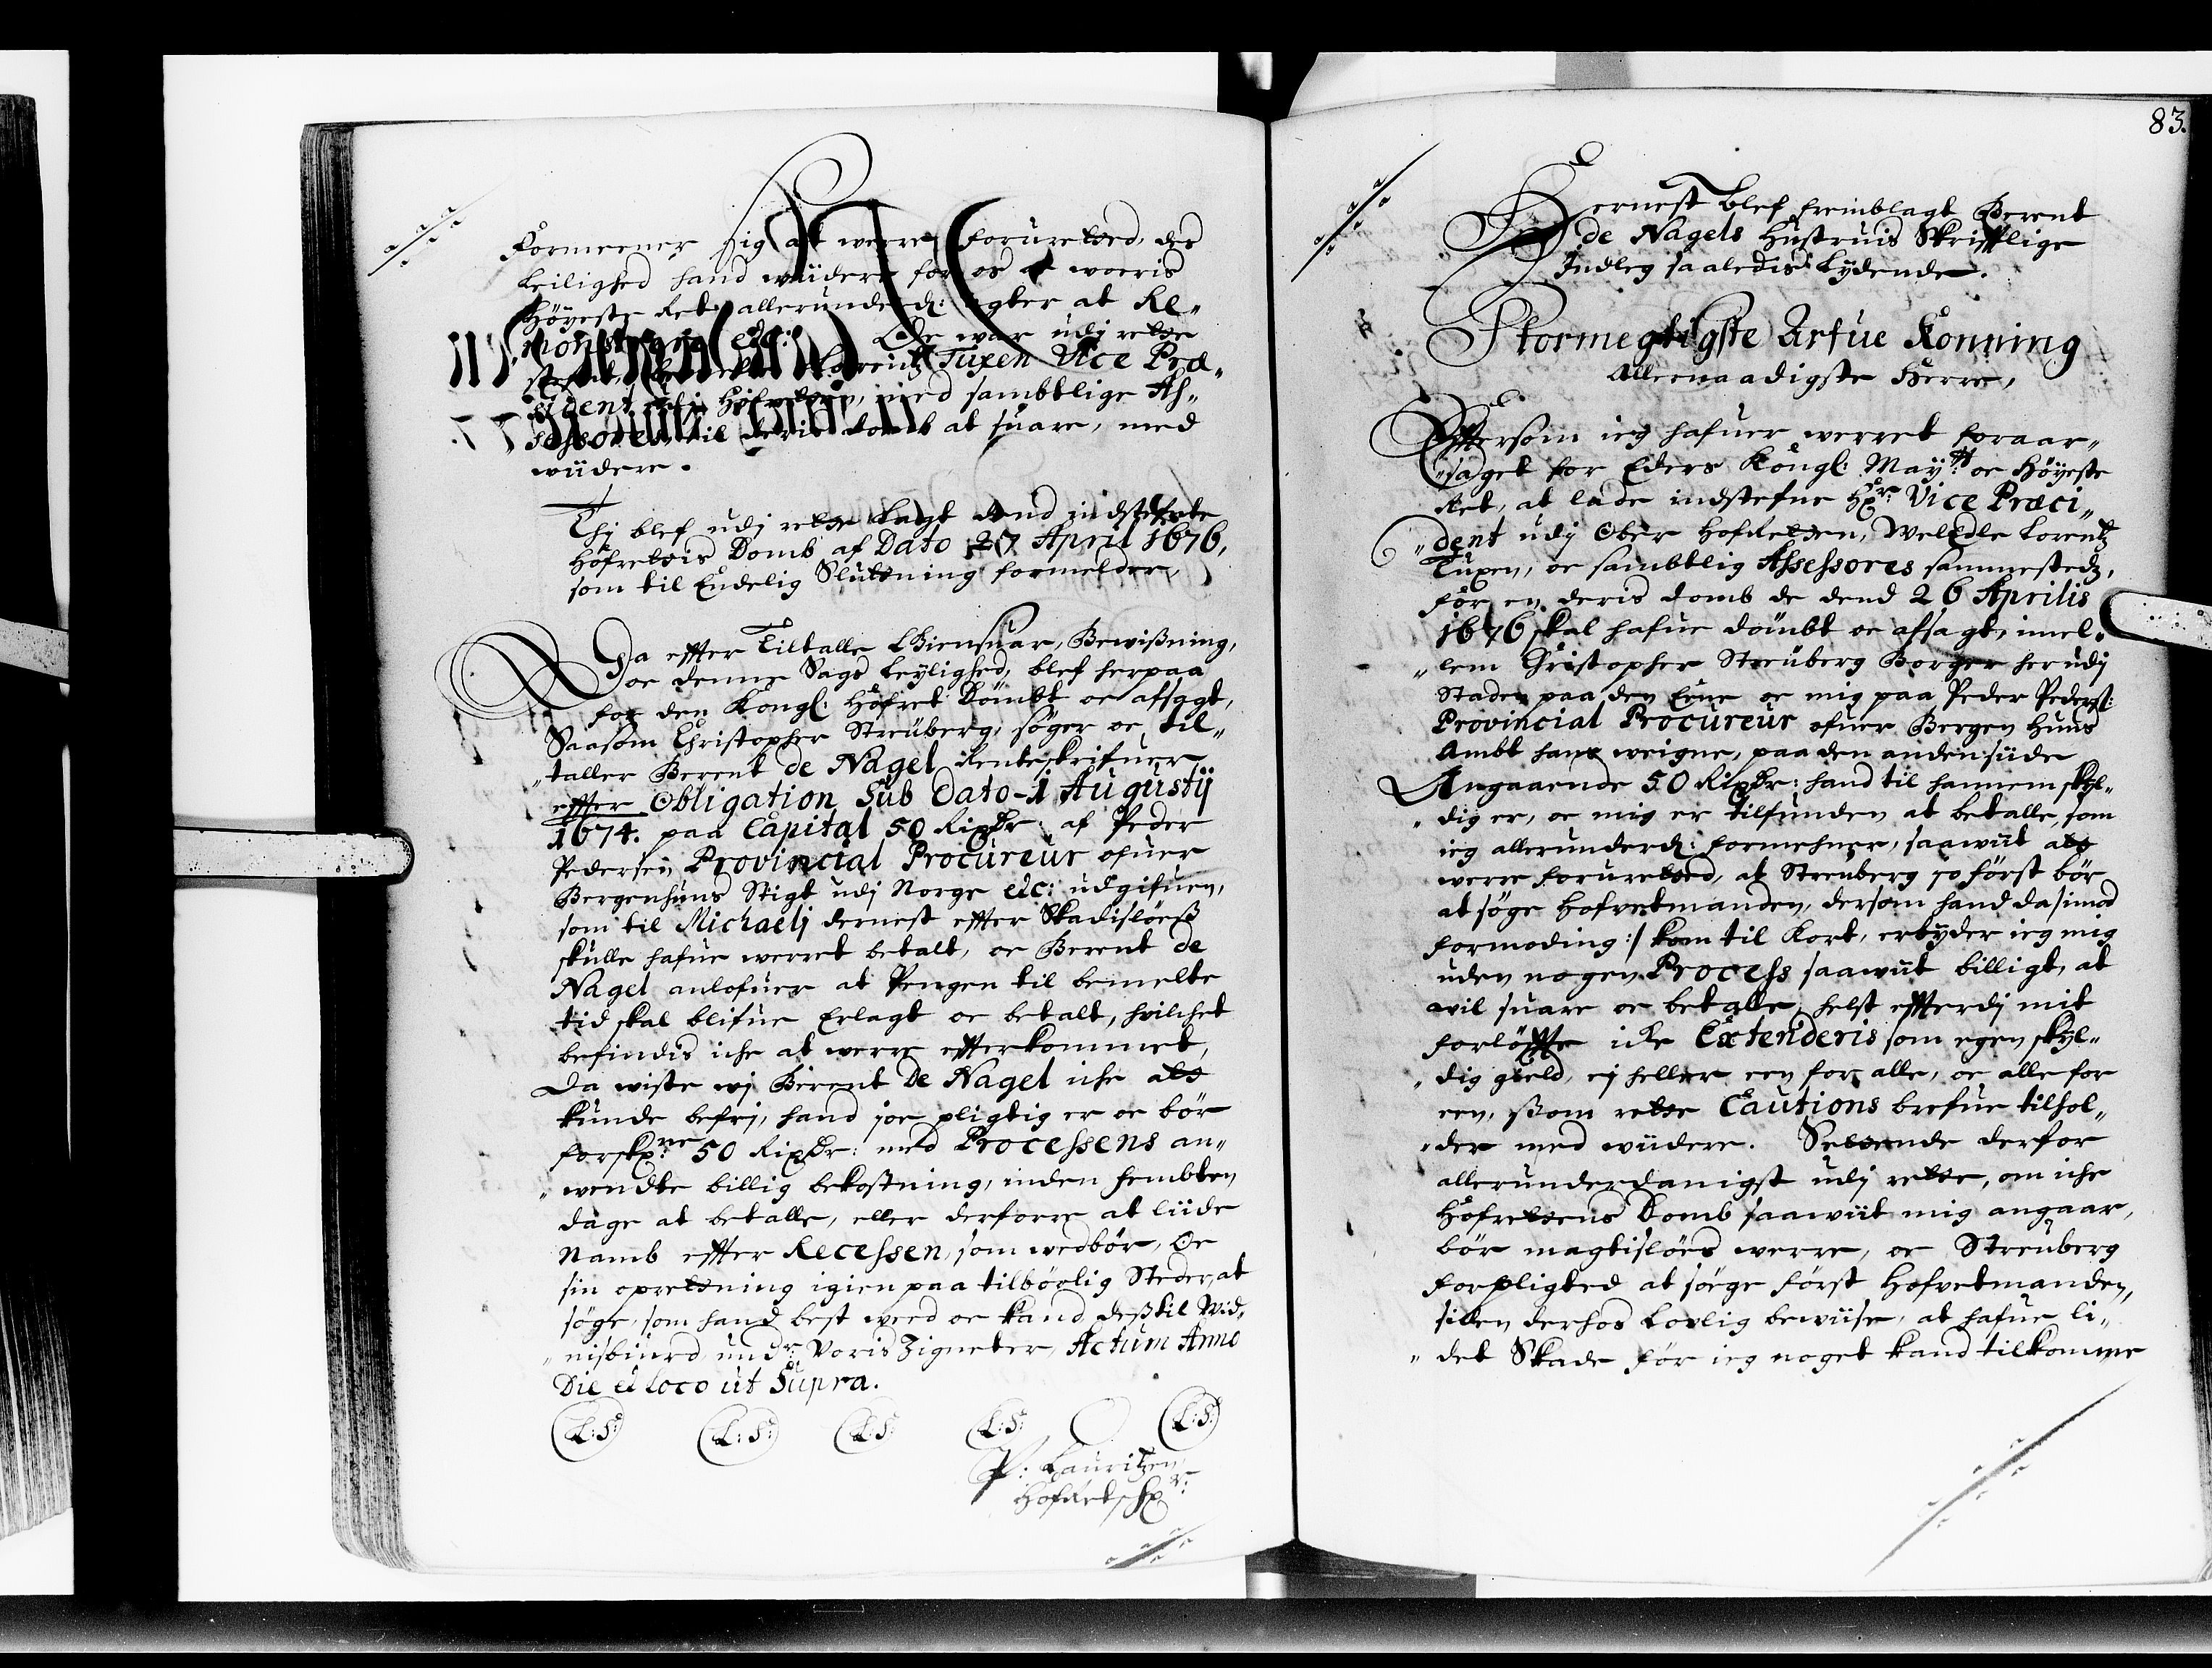 Formeener sig at werre foruretted, des
leilighed hand widere for os i woris
Höyeste Ret allerunderd: agter at Re„
monstrere etc: Oc war udj rette
steffnet Lorentz Tuxen Vice Præ„
sident udj Hofretten, med sambtlige As„
sessores, til deris domb at suare, med
widere.
Thj blef udj rette lagt dend indsteffnte
Hofrettis Domb af Dato 27 April 1676,
som til Endelig Slutning formelder,
Da effter Tiltalle Giensuar, Bewißning,
oc denne Sags leylighed, blef herpaa
for den Kongl: Hofret Dömbt oc afsagt,
Saasom Christopher Streuberg, söger oc til„
„taller Berent de Nagel Renteskrifuer
effter Obligation Sub Dato 1 Augustij
1674. paa Capital 50 Rixdr: af Peder
Pedersen Provincial Procureur ofuer
Bergenhuns Stigt udj Norge etc: udgifuen,
som til Michaelj dernest effter Skadislöeß
skulle hafue werret betalt, oc Berent de
Nagel anlofuer at Pengen til bemelte
tid skal blifue Erlagt oc betalt, huilchet
befindis iche at werre effterkommet,
Da wiste wj Berent De Nagel iche att
kunde befrj, hand joe pligtig er oc bör
forskr:ne 50 Rixdr: med Processens an„
„wendte billig bekostning, inden fembten
dage at betalle, eller derforre at liide
Namb effter Recessen, som wedbör, Oc
sin oprettning igien paa tilbörlig Steder, at
söge, som hand best weed oc kand, deßtil Wid„
„nisbiurd, undr: Voris Zigneter, Actum Anno
Die et loco ut Supra.
L:S: L:S: L:S: L:S: L:S:
P: Lauritzen
HofRetskr:
83.
Dernest blef fremblagt Berent
de Nagels Hustruis Skrifftlige
Indleg saaledis Lydende.
Stormegtigste Arfue Konning
Allernaadigste Herre,
Efftersom ieg hafuer werret foraar„
„saget for Eders Kongl: Maytt: oc Höyeste
Ret, at lade indstefne Hr: Vice Præci„
„dent udj Ober HofRetten, Welædle Lorentz
Tuxen, oc sambtlig Assessores sammestedz,
for en deris domb de dend 26 Aprilis
1676 skal hafue dömbt oc afsagt, imel„
„lem Christopher Streuberg Borger her udj
Staden paa den Eene oc mig paa Peder Peders:
Provincial Procureur ofuer Bergen Huus
Ambt hans weigne, paa den anden siide
Angaaende 50 Rixdr: hand til hannem skyl„
„dig er, oc mig er tilfunden at betalle, som
ieg allerunderd: formehner, saawiit att
werre foruretted, at Streuberg jo först bör
at söge Hofvetmanden, dersom hand da /imod
formoding :/ kom til Kort, erbyder ieg mig
uden nogen Process saawiit billigt, at
wil suare oc betalle, helst effterdj mit
forløffte icke Extenderis som egen skyl„
„dig gield, ej heller een for alle, oc alle for
een, ßom rette Cautions brefue tilhol„
„der med wiidere. Settende derfor
allerunderdanigst udj rette, om iche
Hofrettens Domb saawiit mig angaar,
bör magtislöes werre, oc Streuberg
forpligted at sörge först Hofvetmanden,
siden derhos Lovlig bewiise, at hafue li„
„det Skade för ieg noget kand tilkomme